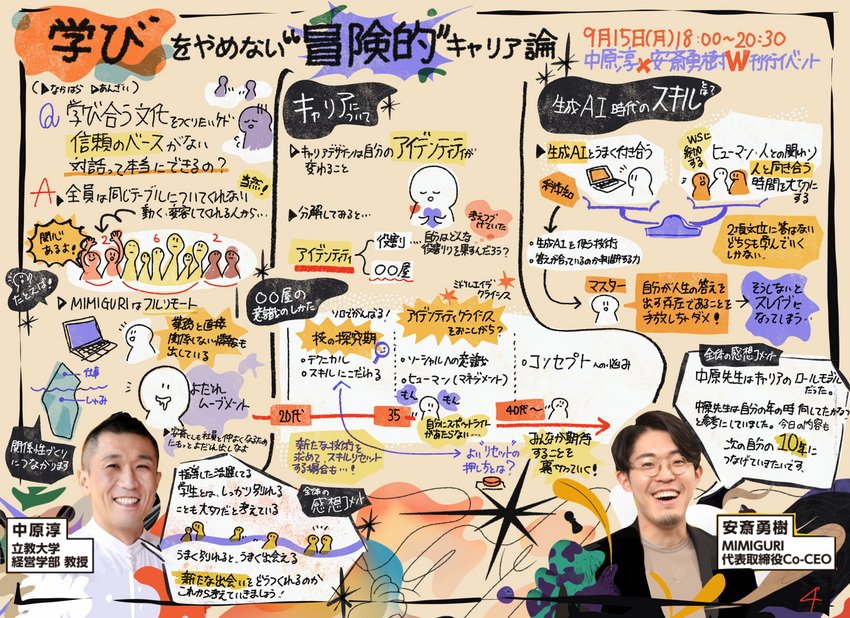 学びをやめない“冒険的”キャリア論
9月15日(月)18:00〜20:30
中原淳×安斎勇樹W刊行イベント
(▶なかはら ▶あんざい)
Q 学び合う文化をつくりたいけど
信頼のベースがない
対話って本当にできるの?
当然!
A ▶全員は同じテーブルについてくれない
動く・変容してくれる人から…
関心あるよ!
2 6 2
たとえば!
▶MIMIGURIはフルリモート
業務と直接
関係しない情報も
出している
仕事
しゃみ
よだれ
ムーブメント
関係性づくり
につながります
キャリアについて
▶キャリアデザインは自分のアイデンティティが
変わること
▶分解してみると…
考えつづけていた
アイデンティティ
役割り…自分はどんな
役割りを果すんだろう?
〇〇屋
〇〇屋の
意識のしかた
ソロでがんばる!
技の探究期
・テクニカル
・スキルにこだわる
ミドルエイジ
クライシス
アイデンティティクライシス
をおこしがち?
・ソーシャルへの意識
・ヒューマン(マネジメント)
・コンセプトへの凄み
20代
35
40代〜
もん
もん
自分にスポットライト
があたらない…
新たな技術を
求めてスキルリセット
する場合も…!
よい“リセット”の
押し方とは?
みんなが期待
することを
裏切っていく!
生成AI時代のスキルとは?
▶生成AIとうまく付き合う
WSに
参加
する
ヒューマン・人との関わり
人と向き合う
時間を大切に
する
・生成AIを使う技術
・答えが合っているのか判断する力
2項対立に答はない
どちらも学んでいく
しかない。
マスター
自分が人生の答えを
出す存在であることを
手放しちゃダメ!
そうしないと
スレイブと
なってしまう…
全体の感想コメント
中原先生はキャリアのロールモデル
だった。
次の自分の10年に
つなげていきたいです。
全体の
感想コメント
指導した活躍してる
学生とは、しっかり別れる
ことも大切だと考えている
うまく別れると、うまく出会える
新たな出会いをどうつくれるのか
これから考えていきましょう!
中原淳
立教大学
経営学部 教授
安斎勇樹
MIMIGURI
代表取締役Co-CEO
4